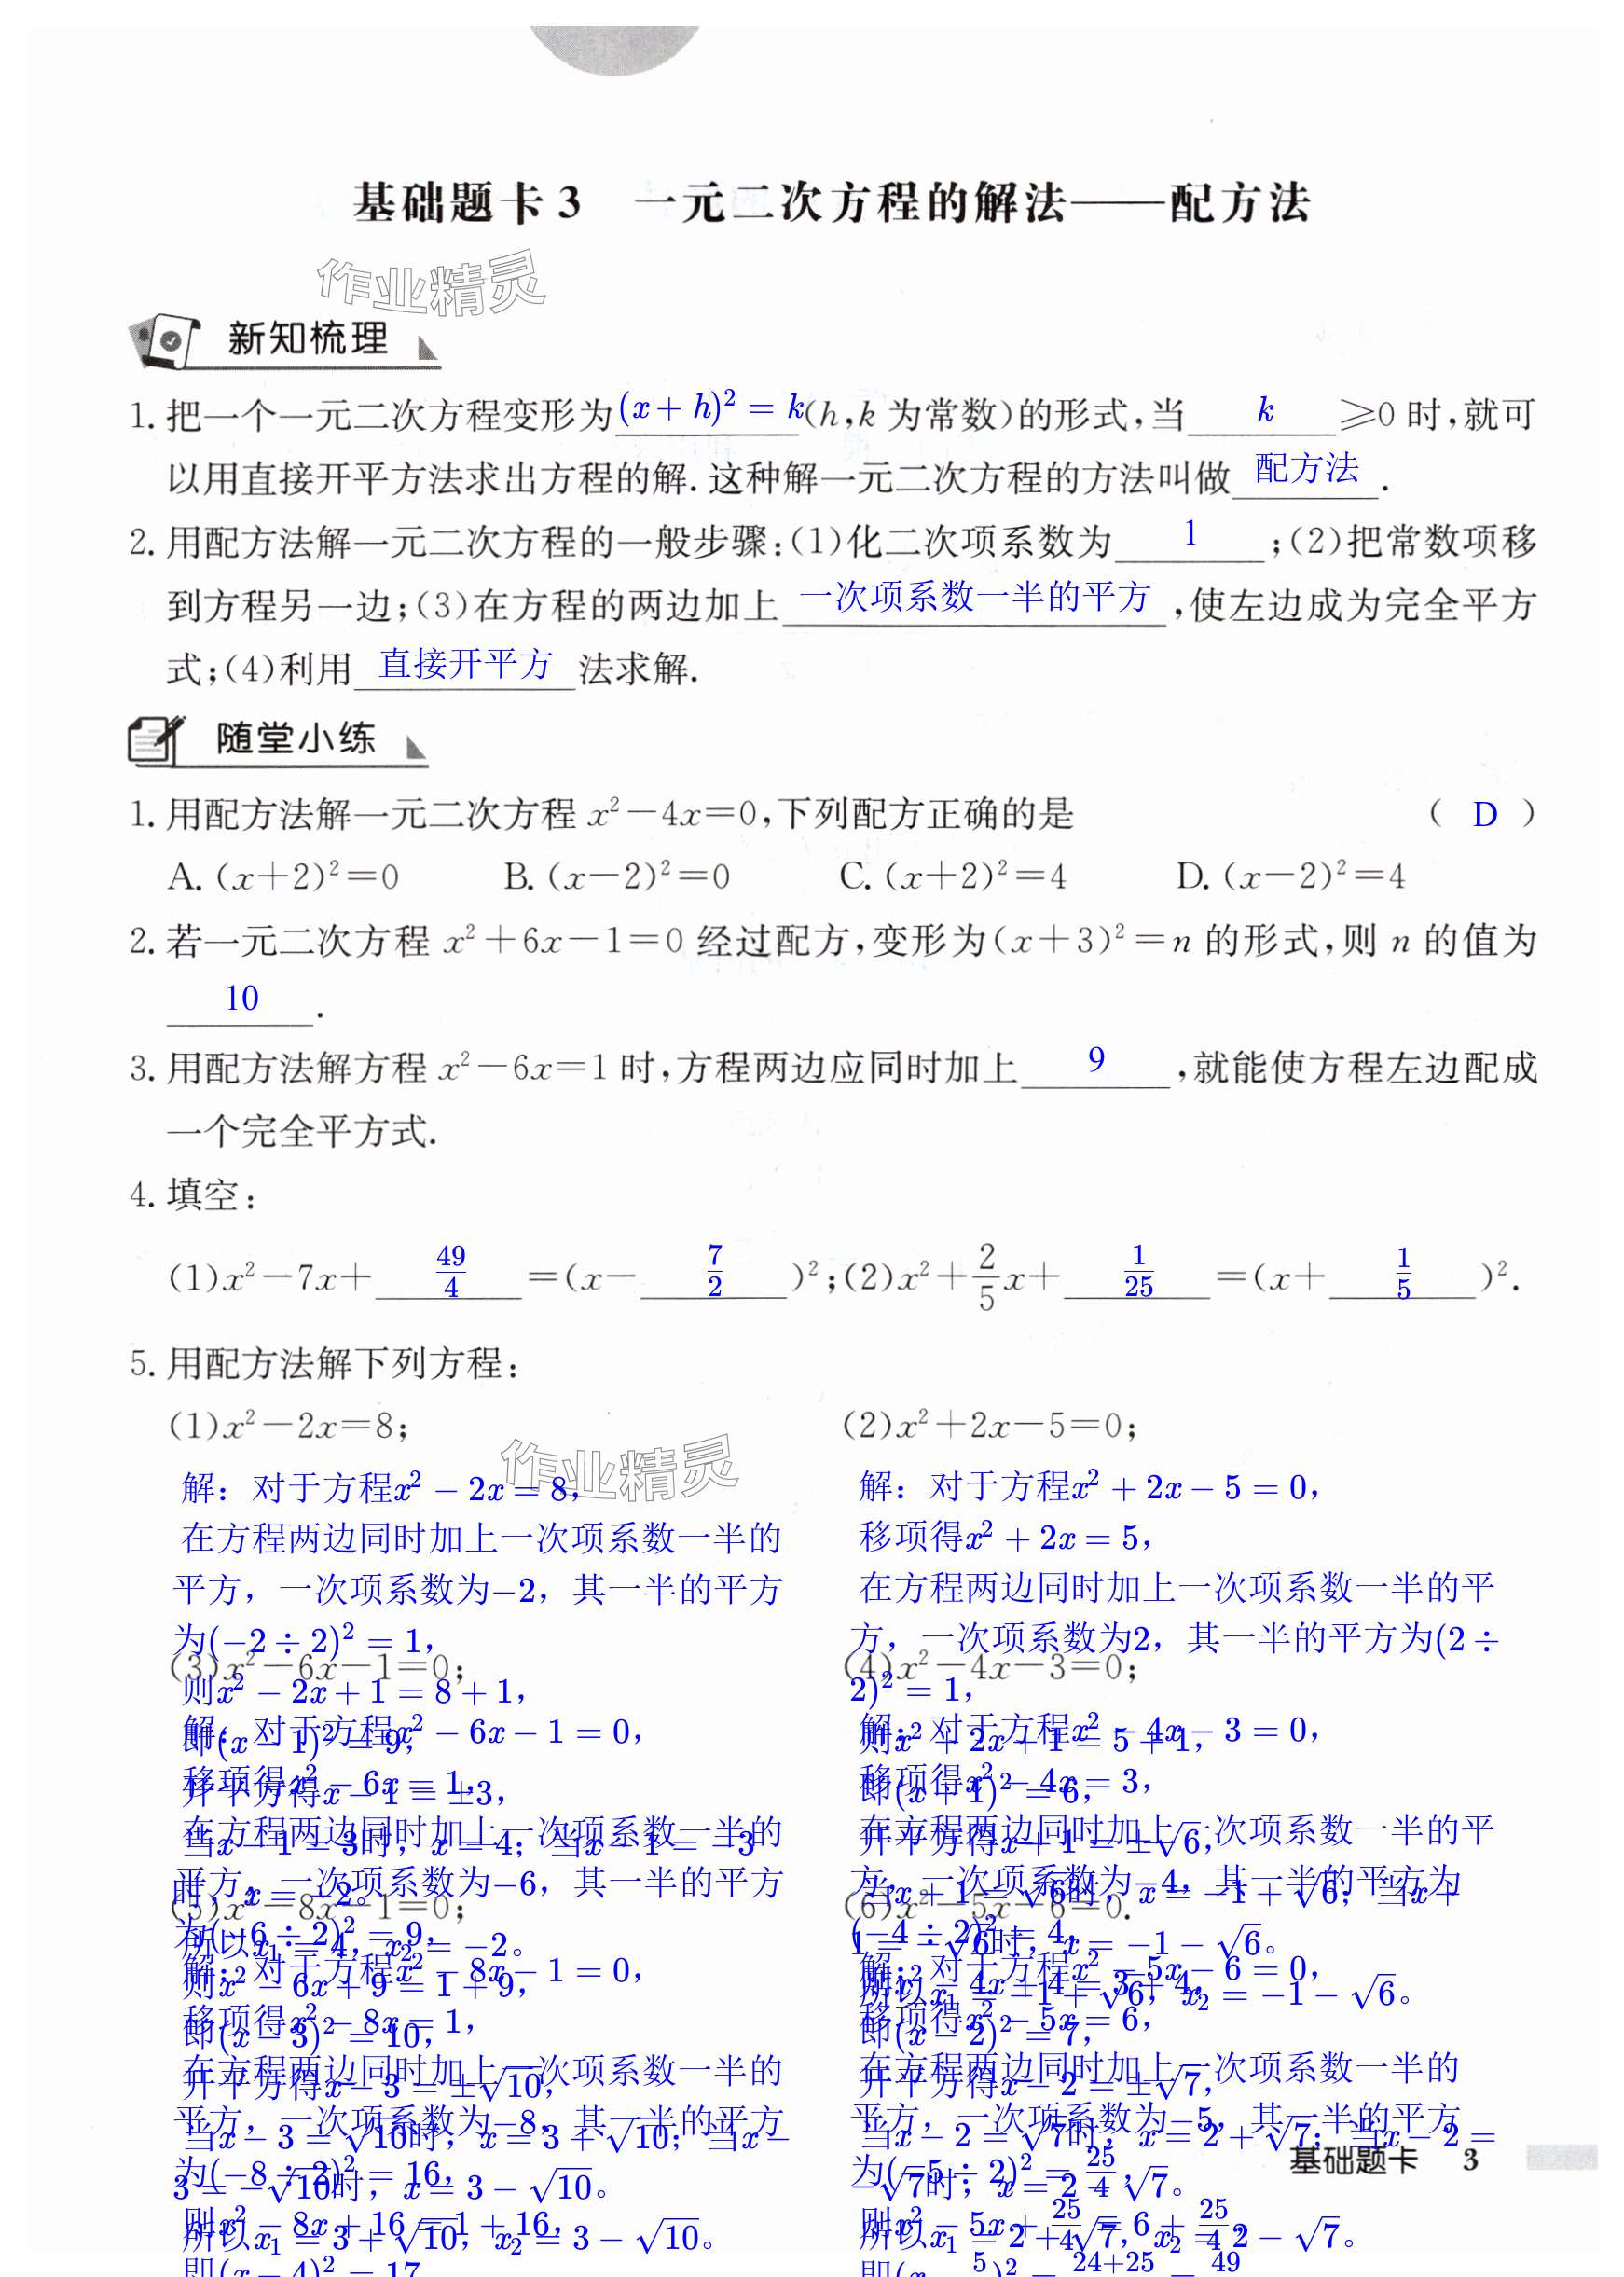 基础题卡3 一元二次方程的解法——配方法
作业精灵
新知梳理
1. 把一个一元二次方程变形为(x+h)²=k(h,k为常数)的形式,当 k ≥0时,就可
以用直接开平方法求出方程的解. 这种解一元二次方程的方法叫做 配方法 .
2. 用配方法解一元二次方程的一般步骤:(1)化二次项系数为 1 ;(2)把常数项移
到方程另一边;(3)在方程的两边加上 一次项系数一半的平方 ,使左边成为完全平方
式;(4)利用 直接开平方 法求解.
随堂小练
1. 用配方法解一元二次方程 x²-4x=0,下列配方正确的是 ( D )
A. (x+2)²=0 B. (x-2)²=0 C. (x+2)²=4 D. (x-2)²=4
2. 若一元二次方程 x²+6x-1=0 经过配方,变形为(x+3)²=n 的形式,则 n 的值为
10 .
3. 用配方法解方程 x²-6x=1 时,方程两边应同时加上 9 ,就能使方程左边配成
一个完全平方式.
4. 填空:
(1)x²-7x+ 49/4 =(x- 7/2 )²;(2)x²+2/5x+ 1/25 =(x+ 1/5 )².
5. 用配方法解下列方程:
(1)x²-2x=8; (2)x²+2x-5=0;
作业精灵
解：对于方程x²-2x=8，
在方程两边同时加上一次项系数一半的
平方，一次项系数为-2，其一半的平方
为(-2÷2)²=1，
则x²-2x+1=8+1，
即(x-1)²=9，
开平方得x-1=±3，
当x-1=3时，x=4；当x-1=-3
时，x=-2。
所以x₁=4，x₂=-2。
解：对于方程x²+2x-5=0，
移项得x²+2x=5，
在方程两边同时加上一次项系数一半的平
方，一次项系数为2，其一半的平方为(2÷
2)²=1，
则x²+2x+1=5+1，
即(x+1)²=6，
开平方得x+1=±√6，
当x+1=√6时，x=-1+√6；当x+
1=-√6时，x=-1-√6。
所以x₁=-1+√6，x₂=-1-√6。
(3)x²-6x-1=0; (4)x²-4x-3=0;
解：对于方程x²-6x-1=0，
移项得x²-6x=1，
在方程两边同时加上一次项系数一半的
平方，一次项系数为-6，其一半的平方
为(-6÷2)²=9，
则x²-6x+9=1+9，
即(x-3)²=10，
开平方得x-3=±√10，
当x-3=√10时，x=3+√10；当x-
3=-√10时，x=3-√10。
所以x₁=3+√10，x₂=3-√10。
解：对于方程x²-4x-3=0，
移项得x²-4x=3，
在方程两边同时加上一次项系数一半的平
方，一次项系数为-4，其一半的平方为
(-4÷2)²=4，
则x²-4x+4=3+4，
即(x-2)²=7，
开平方得x-2=±√7，
当x-2=√7时，x=2+√7；当x-2=
-√7时，x=2-√7。
所以x₁=2+√7，x₂=2-√7。
(5)x²-8x-1=0; (6)x²-5x-6=0.
解：对于方程x²-8x-1=0，
移项得x²-8x=1，
在方程两边同时加上一次项系数一半的
平方，一次项系数为-8，其一半的平方
为(-8÷2)²=16，
则x²-8x+16=1+16，
即(x-4)²=17
解：对于方程x²-5x-6=0，
移项得x²-5x=6，
在方程两边同时加上一次项系数一半的
平方，一次项系数为-5，其一半的平方
为(-5÷2)²=25/4，
则x²-5x+25/4=6+25/4，
基础题卡 3